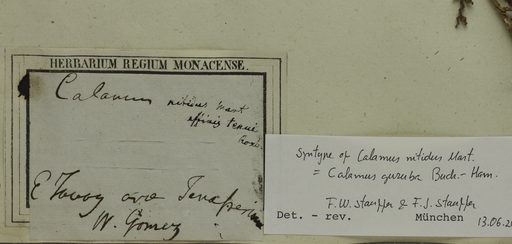 HERBARIUM REGIUM MONACENSE.
Calamus nitidus Mart
affinis tenui
Roxb
E Tavoy ora Tenasserim
W. Gomez
Syntype of Calamus nitidus Mart.
= Calamus guruba Buch.-Ham.
F.W. Stauffer & F.J. Stauffer
Det. - rev. München 13.06.20